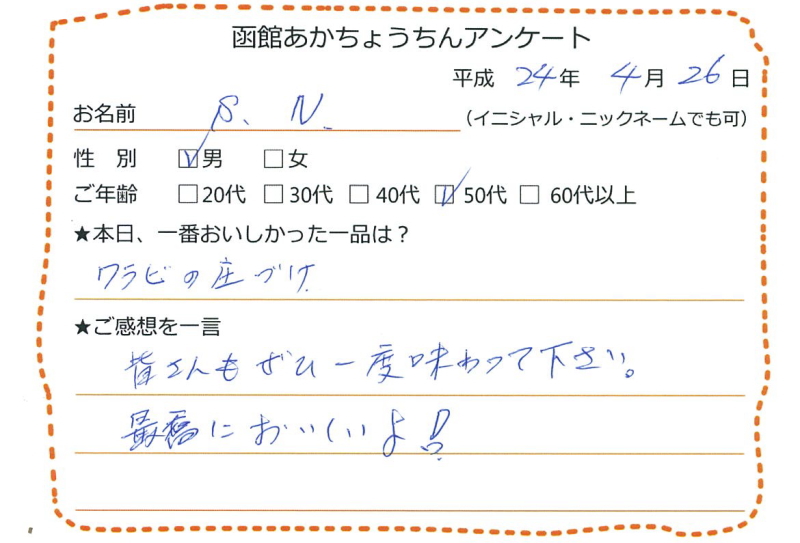 函館あかちょうちんアンケート
平成 24年 4月 26日
お名前 S. N. (イニシャル・ニックネームでも可)
性 別 ☑男 □女
ご年齢 □20代 □30代 □40代 ☑50代 □ 60代以上
★本日、一番おいしかった一品は？
ワラビの庄づけ
★ご感想を一言
皆さんもぜひ一度味わって下さい。
最高においしいよ！